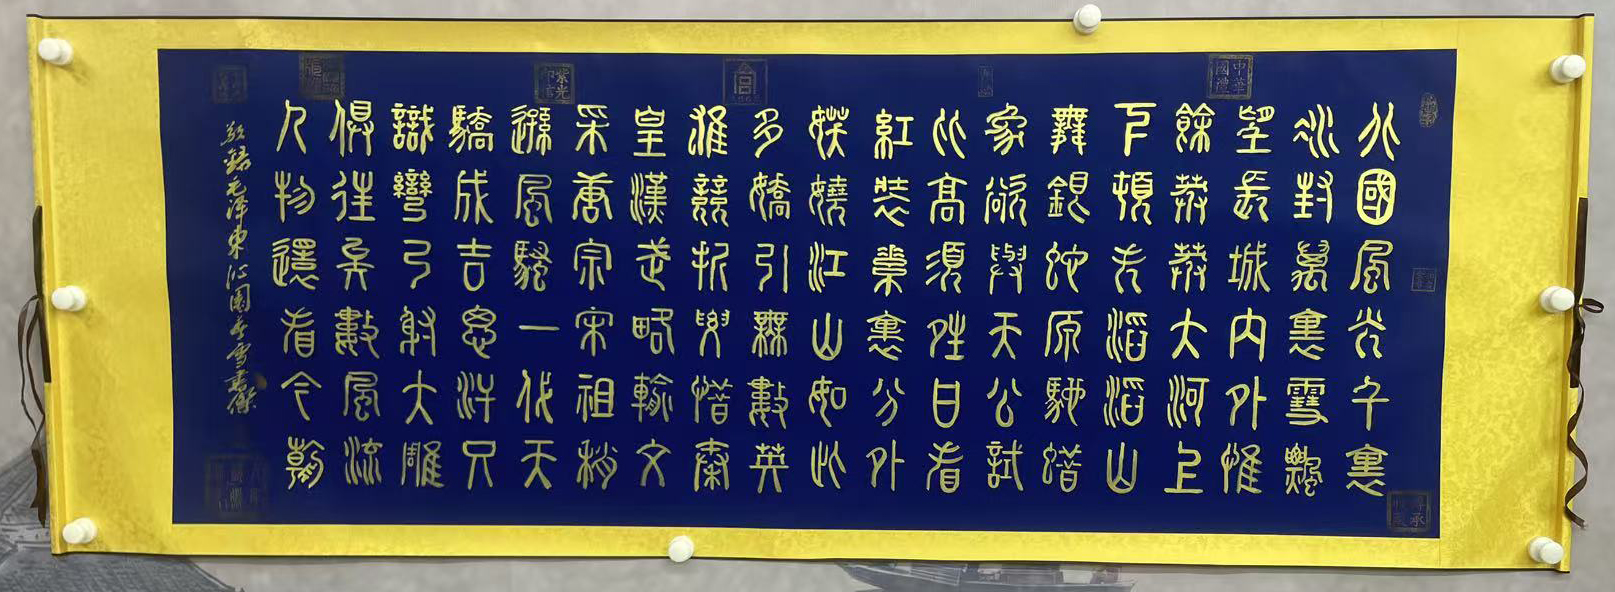 北國風光千裏
冰封萬裏雪飄
望長城內外惟
餘莽莽大河上
下頓失滔滔山
舞銀蛇原馳蜡
象欲與天公試
比高須晴日看
紅裝素裹分外
妖嬈江山如此
多嬌引無數英
雄競折腰惜秦
皇漢武略輸文
采唐宗宋祖稍
遜風騷一代天
驕成吉思汗只
識彎弓射大雕
俱往矣數風流
人物還看今朝
敬錄毛澤東沁園春雪
中華國禮